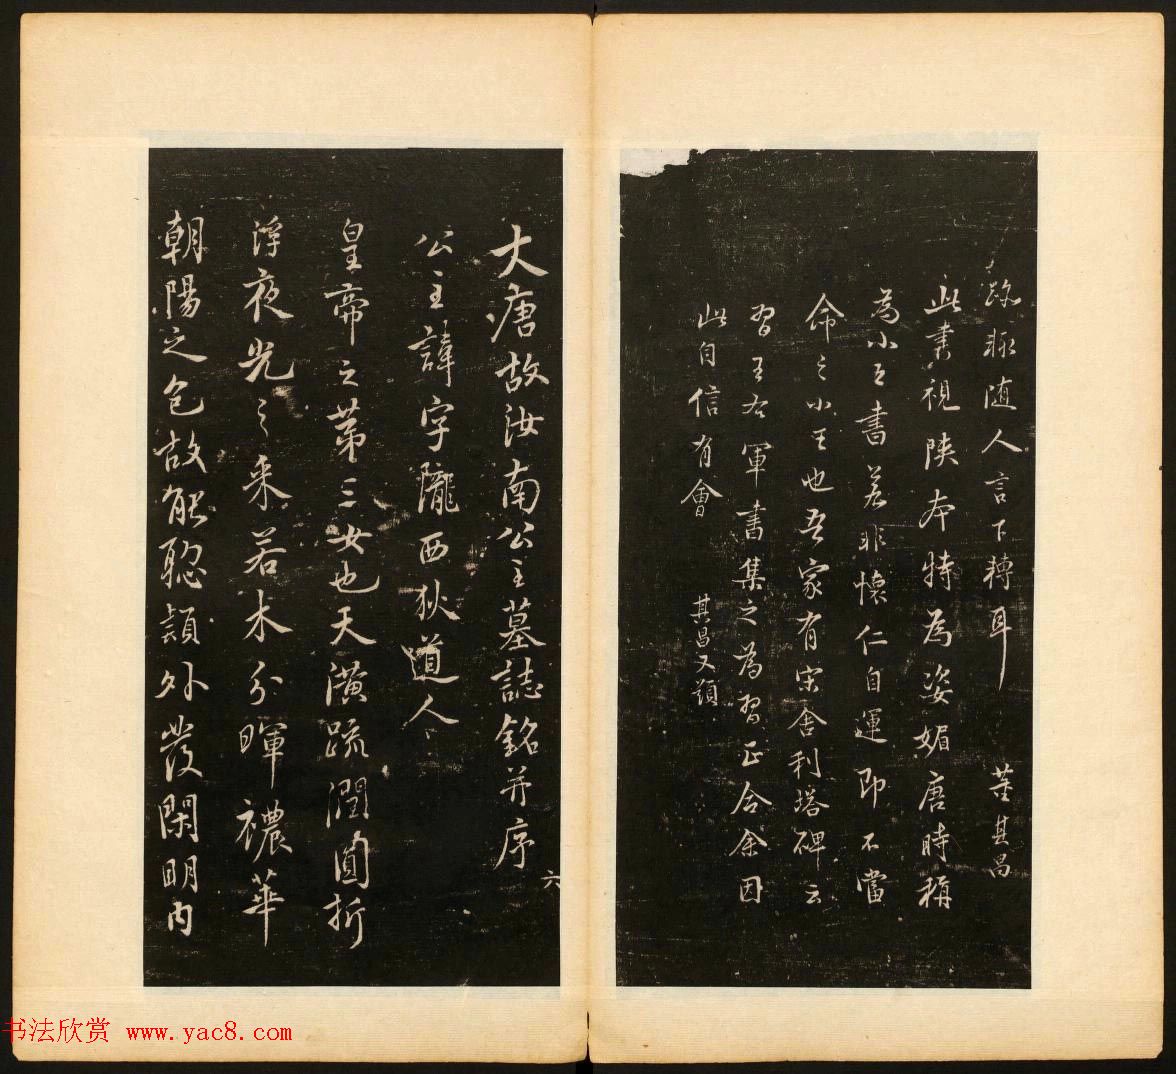 路聊随人言下轉耳 董其昌
此書視陝本特為姿媚唐時稱
為小王書若非懷仁自運即不當
命之小王也吾家有宋舍利塔碑云
習王右軍書集之為習正合余因
此自信有會 其昌又題
大唐故汝南公主墓誌銘并序
六
公主諱字隴西狄道人
皇帝之第三女也天潢疏潤圓折
浮夜光之采若木分暉襛華
朝陽之色故能聰穎外發閑明内
书法欣赏 www.yac8.com